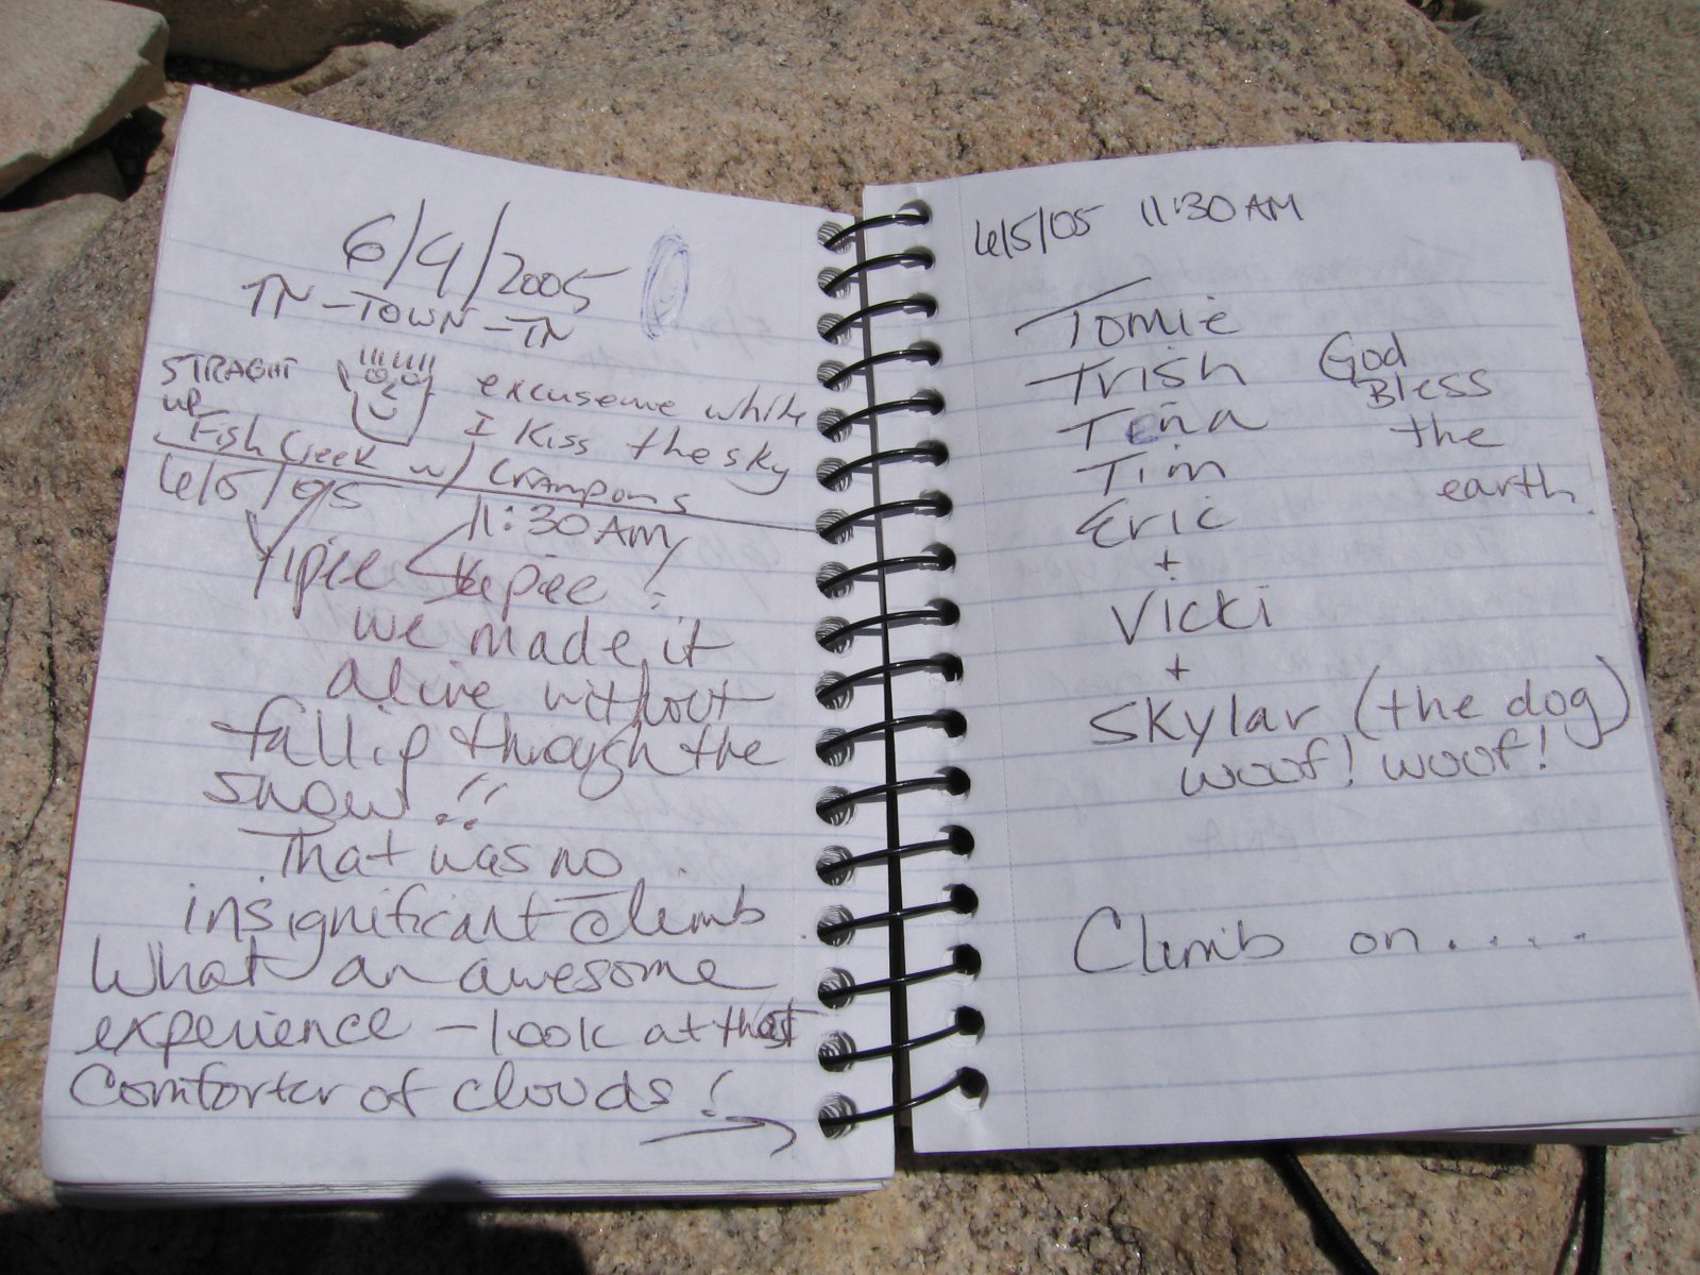 6/4/2005
TN-TOWN-TN
STRAGHT
up
Fish Creek w/ Crampons
excuseme while
I Kiss the sky
6/5/05
11:30 AM
Yipiee Skepiee!
we made it
alive without
fallig through the
snow!!
That was no
insignificant climb.
What an awesome
experience - look at that
Comforter of clouds!
6/5/05 11:30 AM
Tomie
Trish
Tina
Tim
Eric
+
Vicki
+
Skylar (the dog)
woof! woof!
God
Bless
the
earth.
Climb on.....